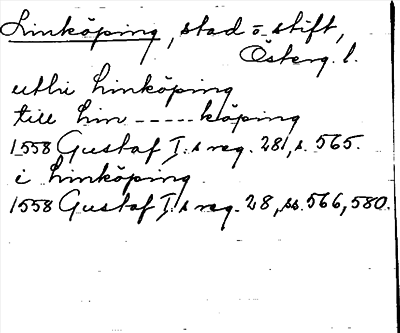 Linköping, stad o. stift,
Österg. l.
uthi Linköping
till Lin-----köping
1558 Gustaf I:s reg. 28, s. 565.
i Linköping
1558 Gustaf I:s reg. 28, ss. 566, 580.